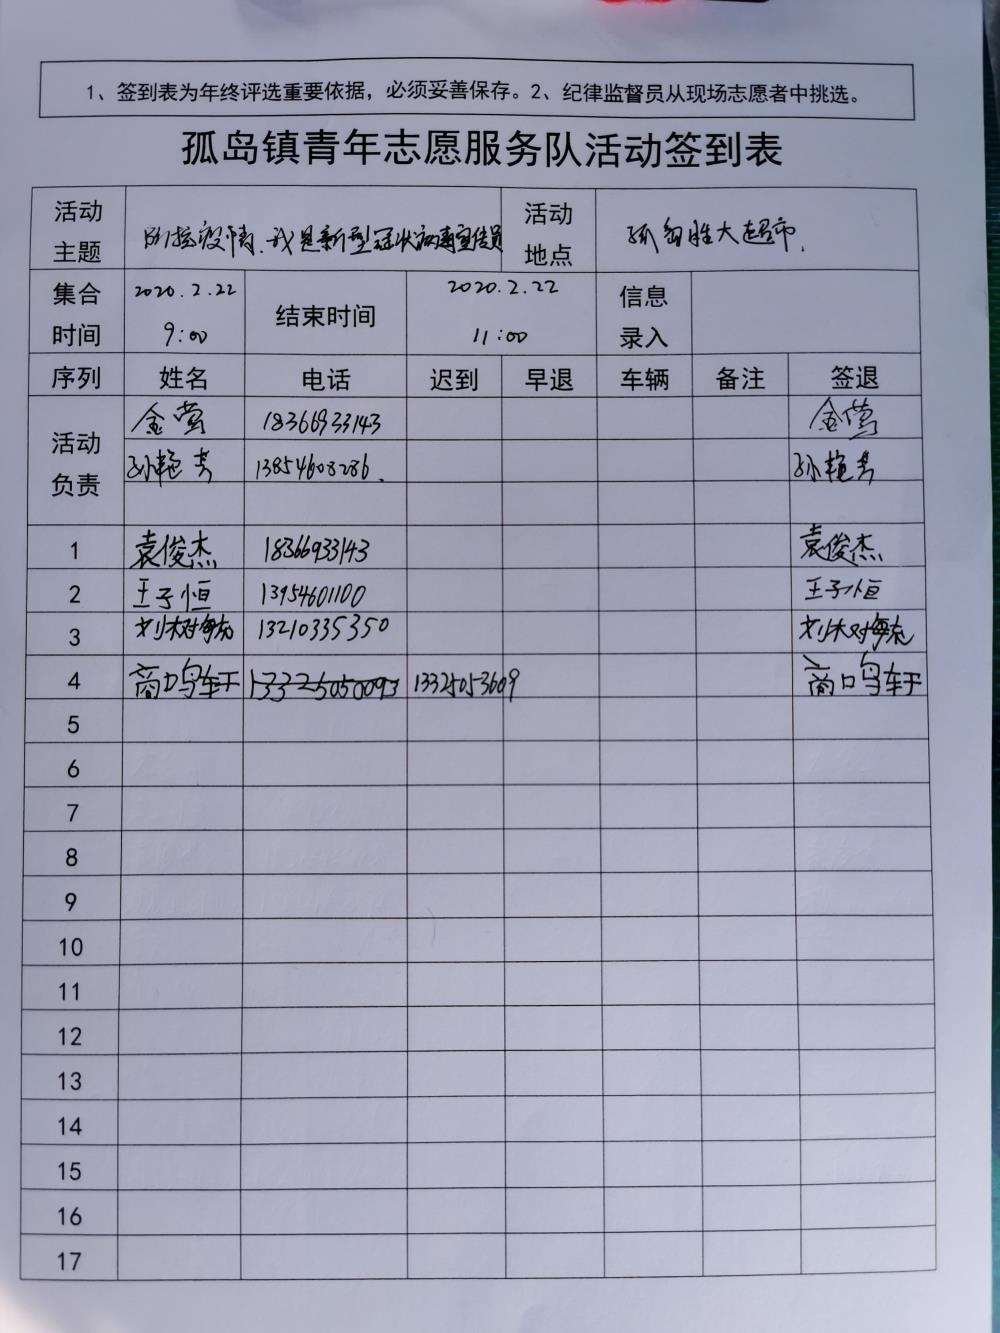 1、签到表为年终评选重要依据，必须妥善保存。2、纪律监督员从现场志愿者中挑选。
孤岛镇青年志愿服务队活动签到表
活动主题 防控疫情、我是新型冠状病毒宣传员 活动地点 孤岛胜大超市.
集合时间 2020.2.22 9:00 结束时间 2020.2.22 11:00 信息录入
序列 姓名 电话 迟到 早退 车辆 备注 签退
活动负责 金莺 18366933143 金莺
孙艳芳 13854608286. 孙艳芳
1 袁俊杰 18366933143 袁俊杰
2 王子恒 13954601100 王子恒
3 刘树 13210335350 刘树
4 商鸣轩 13325050093 13325053609 商鸣轩
5
6
7
8
9
10
11
12
13
14
15
16
17